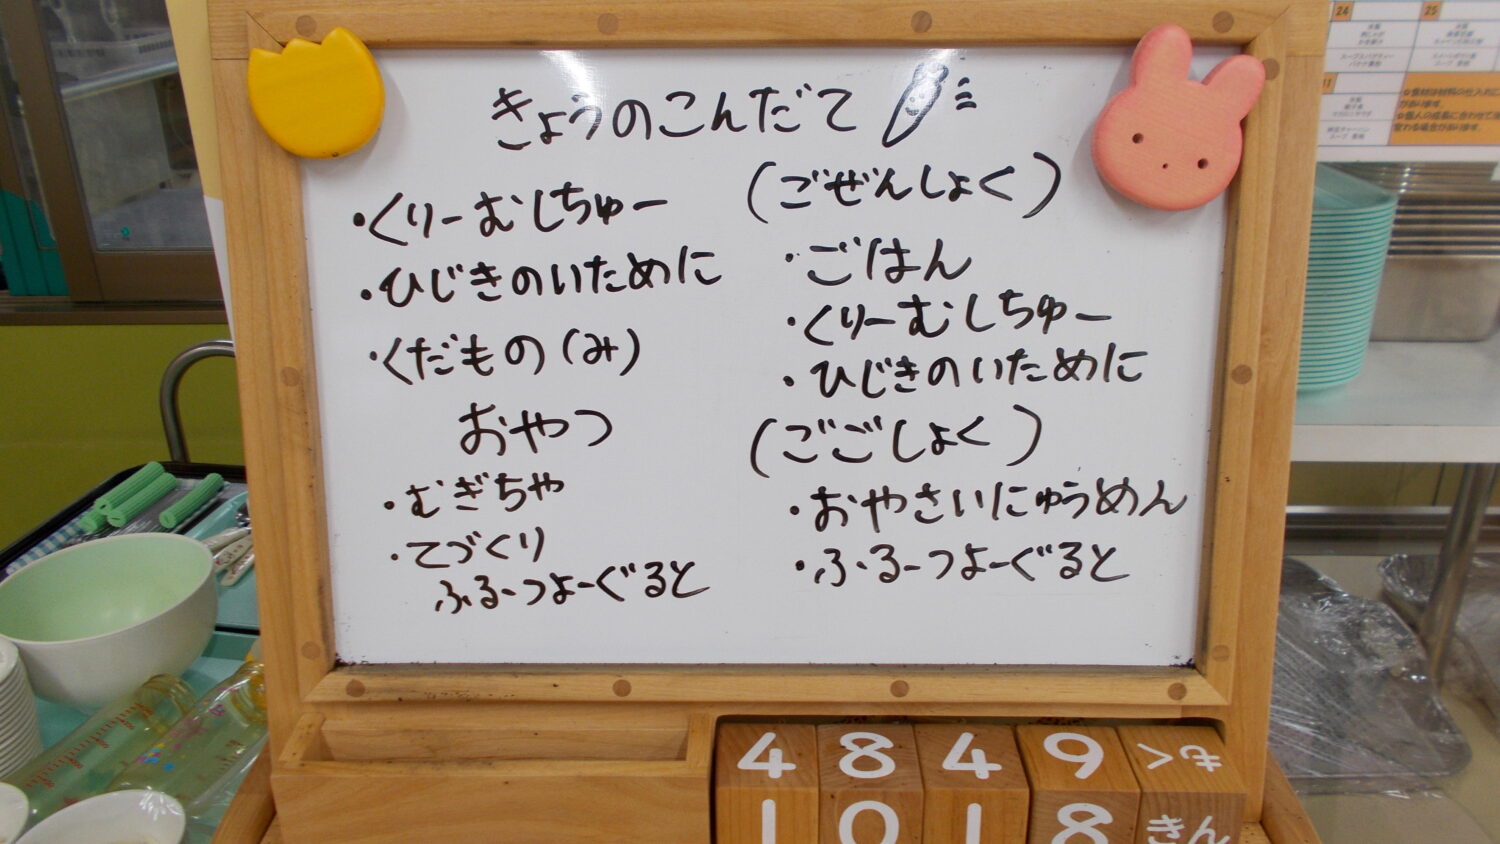 きょうのこんだて
・くりーむしちゅー
・ひじきのいために
・くだもの(み)
おやつ
・むぎちゃ
・てづくり
ふるーつよーぐると
(ごぜんしょく)
・ごはん
・くりーむしちゅー
・ひじきのいために
(ごごしょく)
・おやさいにゅうめん
・ふるーつよーぐると
4 8 4 9 もく
1 0 1 8 きん
24 25